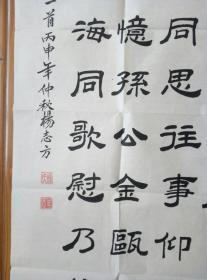 同思往事仰
憶孫公金甌
海同歌慰乃
一首丙申年仲秋楊志方